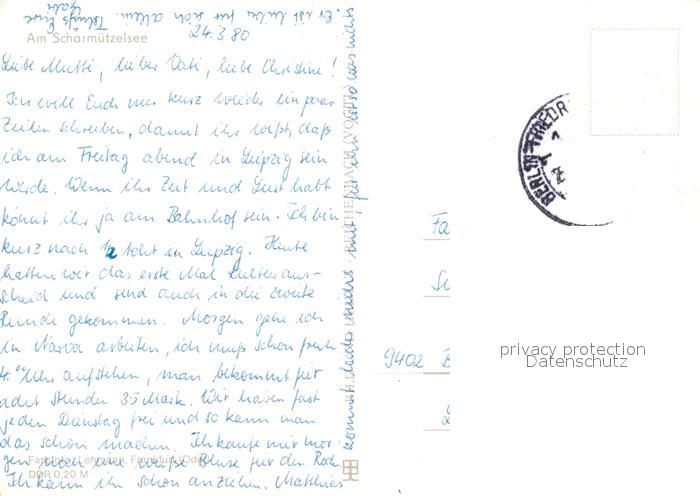 Am Scharmützelsee
24.3.80
Liebe Mutti, lieber Vati, liebe Christine!
Ich will Euch nur kurz wieder ein paar
Zeilen schreiben, damit ihr wißt, daß
ich am Freitag abend in Leipzig sein
werde. Wenn ihr Zeit und Lust habt
könnt ihr ja am Bahnhof sein. Ich bin
kurz nach 1/2 acht in Leipzig. Heute
hatten wir das erste Mal aus-
scheid und sind auch in die zweite
Runde gekommen. Morgen gehe ich
in Narva arbeiten, ich muß schon früh
4.00 Uhr aufstehen, man bekommt für
acht Stunden 35 Mark. Wir haben fast
jeden Dienstag frei und so kann man
das schon machen. Ich kaufe mir mor-
gen noch eine weiße Bluse für den Rock
Ich kann ihn schon anziehen. Matthias
kommt leider nicht mit, für ihn ist so was nichts
. Er ist lieber für sich allein. Tschüß Eure
Gabi
Farbfoto: Lehmann, Frankfurt (Oder)
DDR 0,20 M
BERLIN-FRIEDR
Fa
9402
privacy protection
Datenschutz